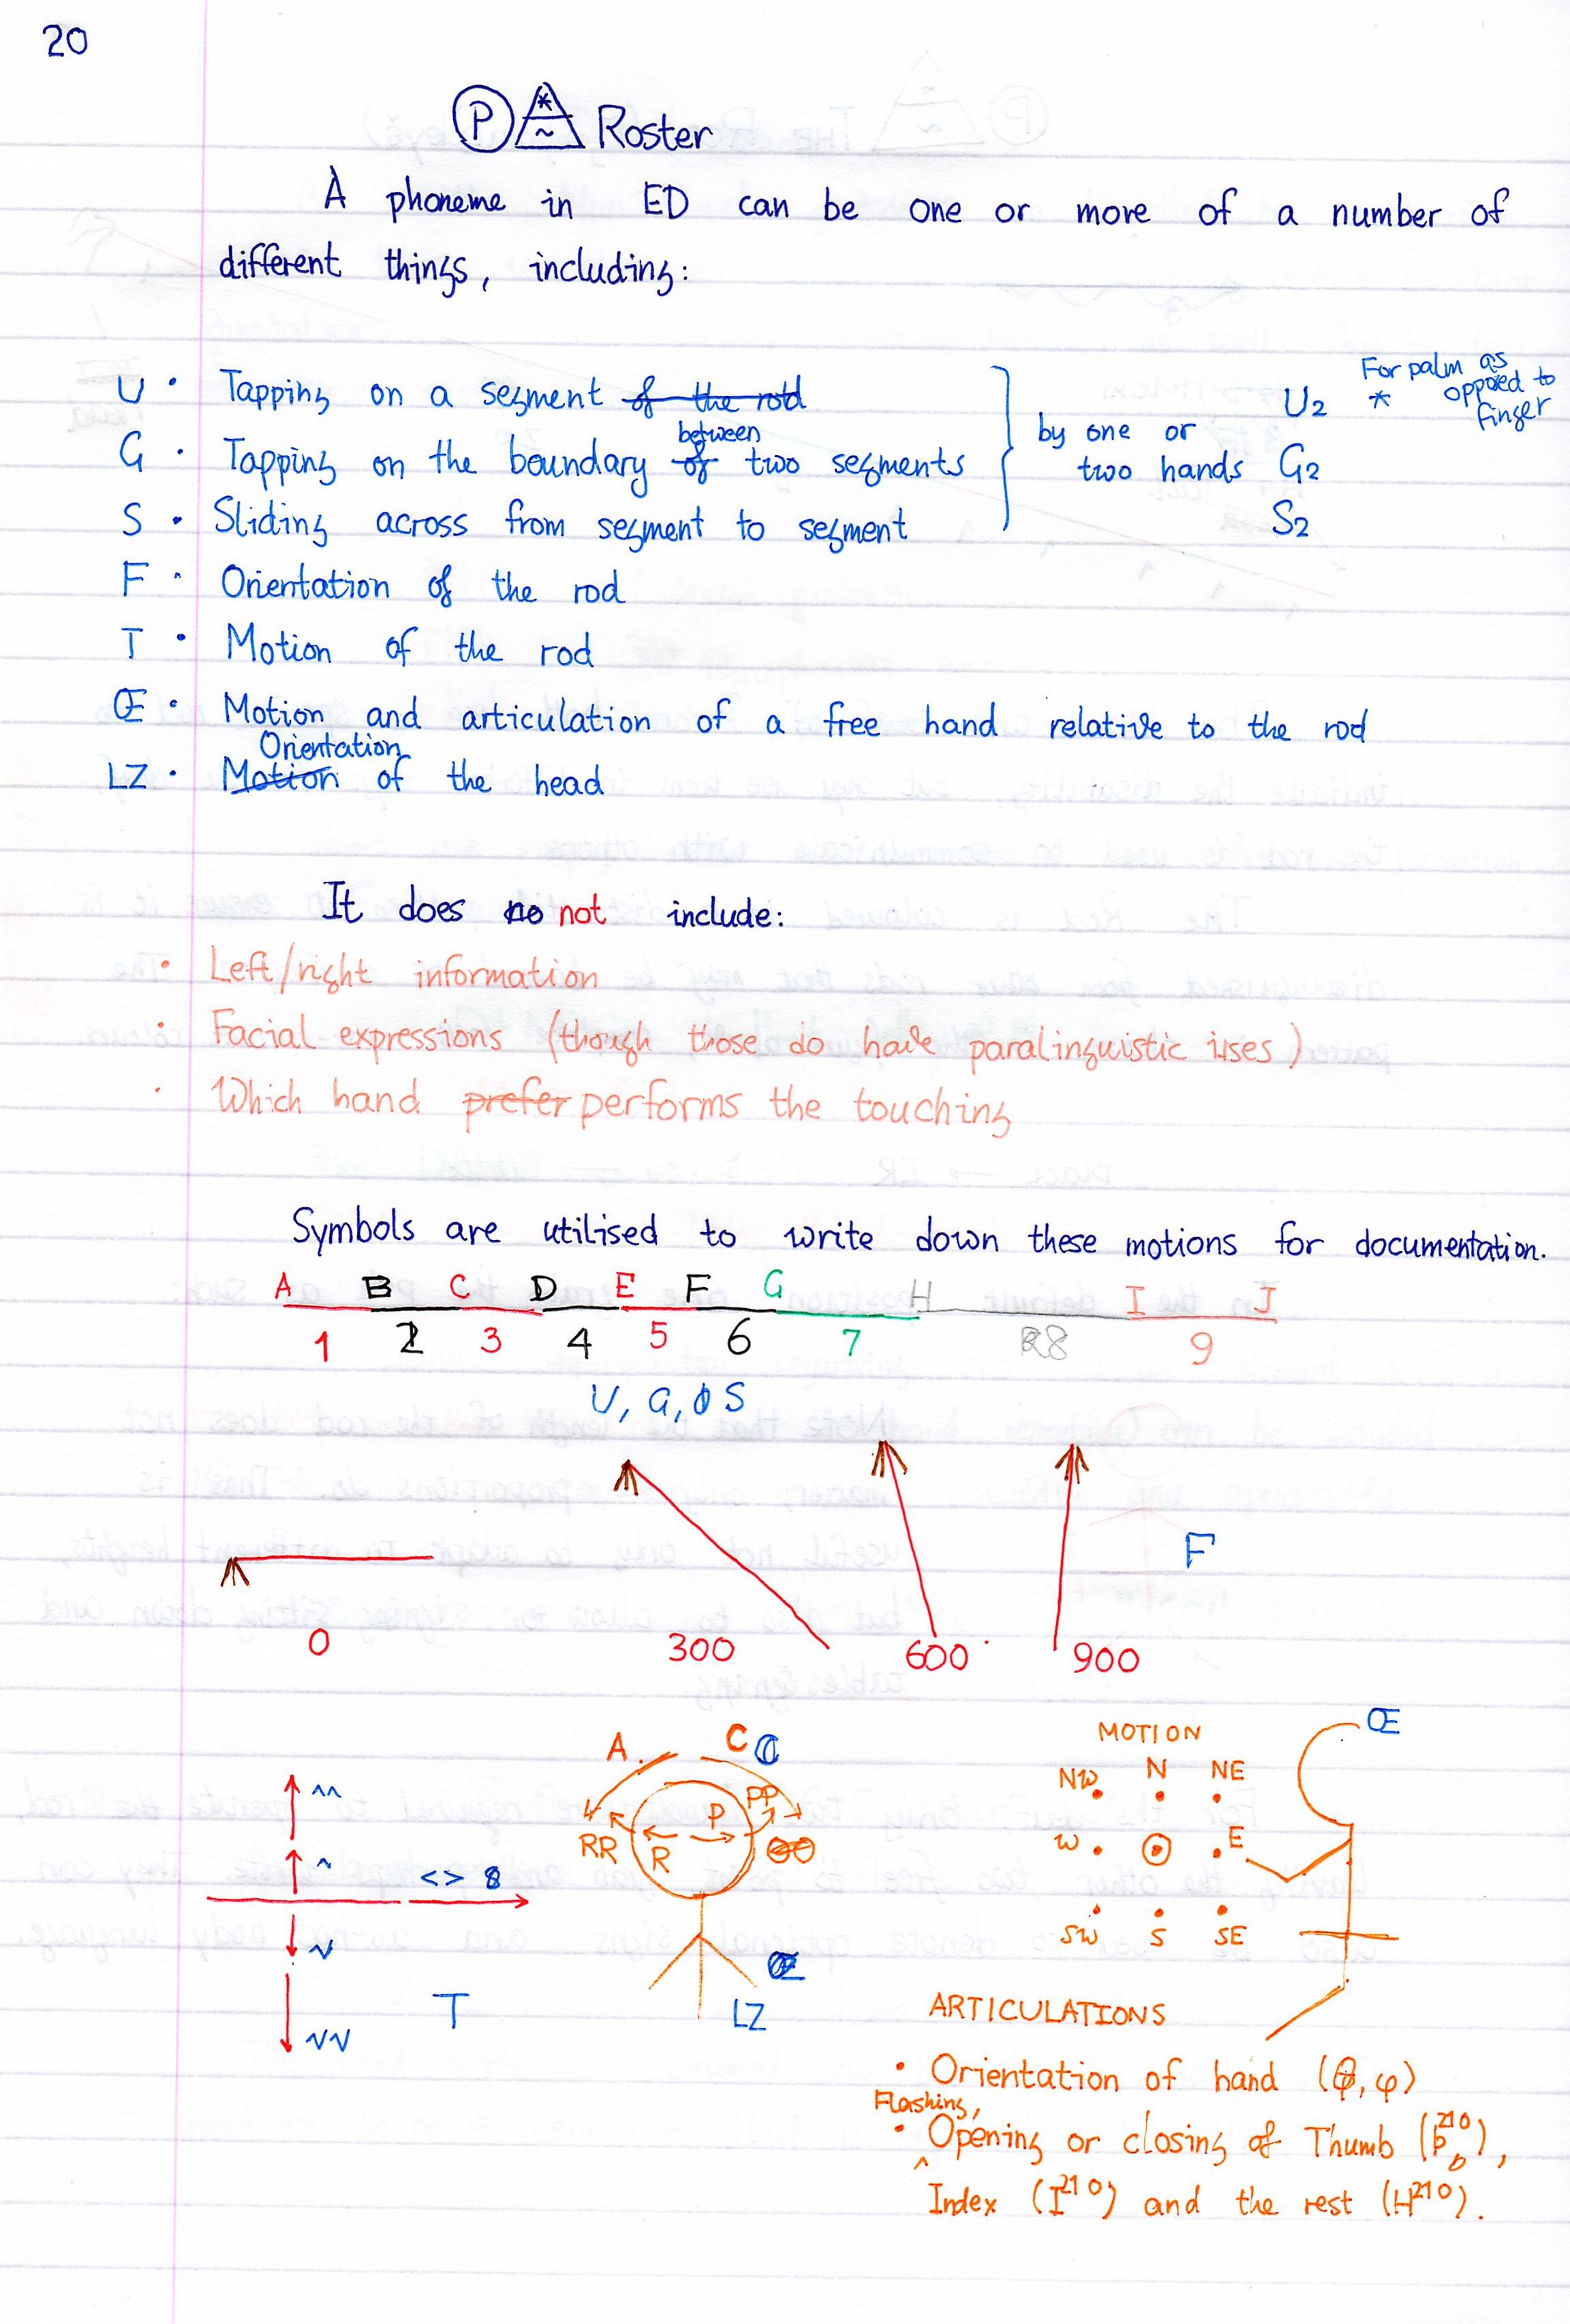 20
P * ~ Roster
A phoneme in ED can be one or more of a number of
different things, including:
U · Tapping on a segment of the rod
G · Tapping on the boundary of between two segments
S · Sliding across from segment to segment
by one or
two hands
U2
G2
S2
* For palm as
opposed to
finger
F · Orientation of the rod
T · Motion of the rod
Œ · Motion and articulation of a free hand relative to the rod
LZ · Motion Orientation of the head
It does no not include:
· Left/right information
· Facial expressions (though those do have paralinguistic uses)
· Which hand prefer performs the touching
Symbols are utilised to write down these motions for documentation.
A B C D E F G H I J
1 2 3 4 5 6 7 8 9
U, G, S
F
0 300 600 900
^^
^
<> 8
v
vv
T
A C
RR R P PP
LZ
MOTION
Œ
NW N NE
W E
SW S SE
ARTICULATIONS
· Orientation of hand (θ, φ)
· Flashing, Opening or closing of Thumb (þ210),
Index (I210) and the rest (H210).